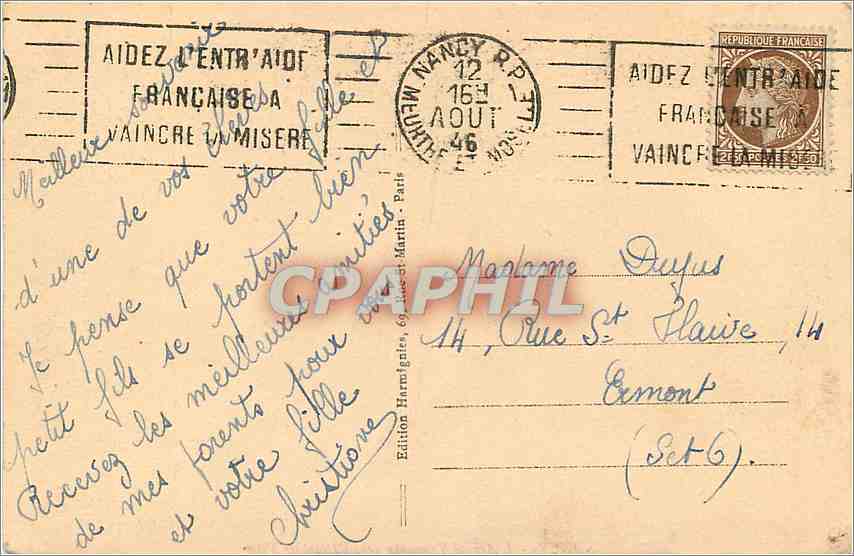 AIDEZ L'ENTR'AIDE
FRANÇAISE A
VAINCRE LA MISERE
NANCY R.P.
12
16H
AOUT
46
MEURTHE ET MOSELLE
REPUBLIQUE FRANÇAISE
AIDEZ L'ENTR'AIDE
FRANÇAISE A
VAINCRE LA MISERE
2F50 POSTES 2F50
Meilleur souvenir
d'une de vos élèves
Je pense que votre fille et
petit fils se portent bien
Recevez les meilleures amitiés
de mes parents pour vous
et votre fille
Christiane
Edition Harmignies, 69, Rue St-Martin - Paris
CPAPHIL
Madame Dupus
14, Rue St Flaive, 14
Ermont
(Set 6).